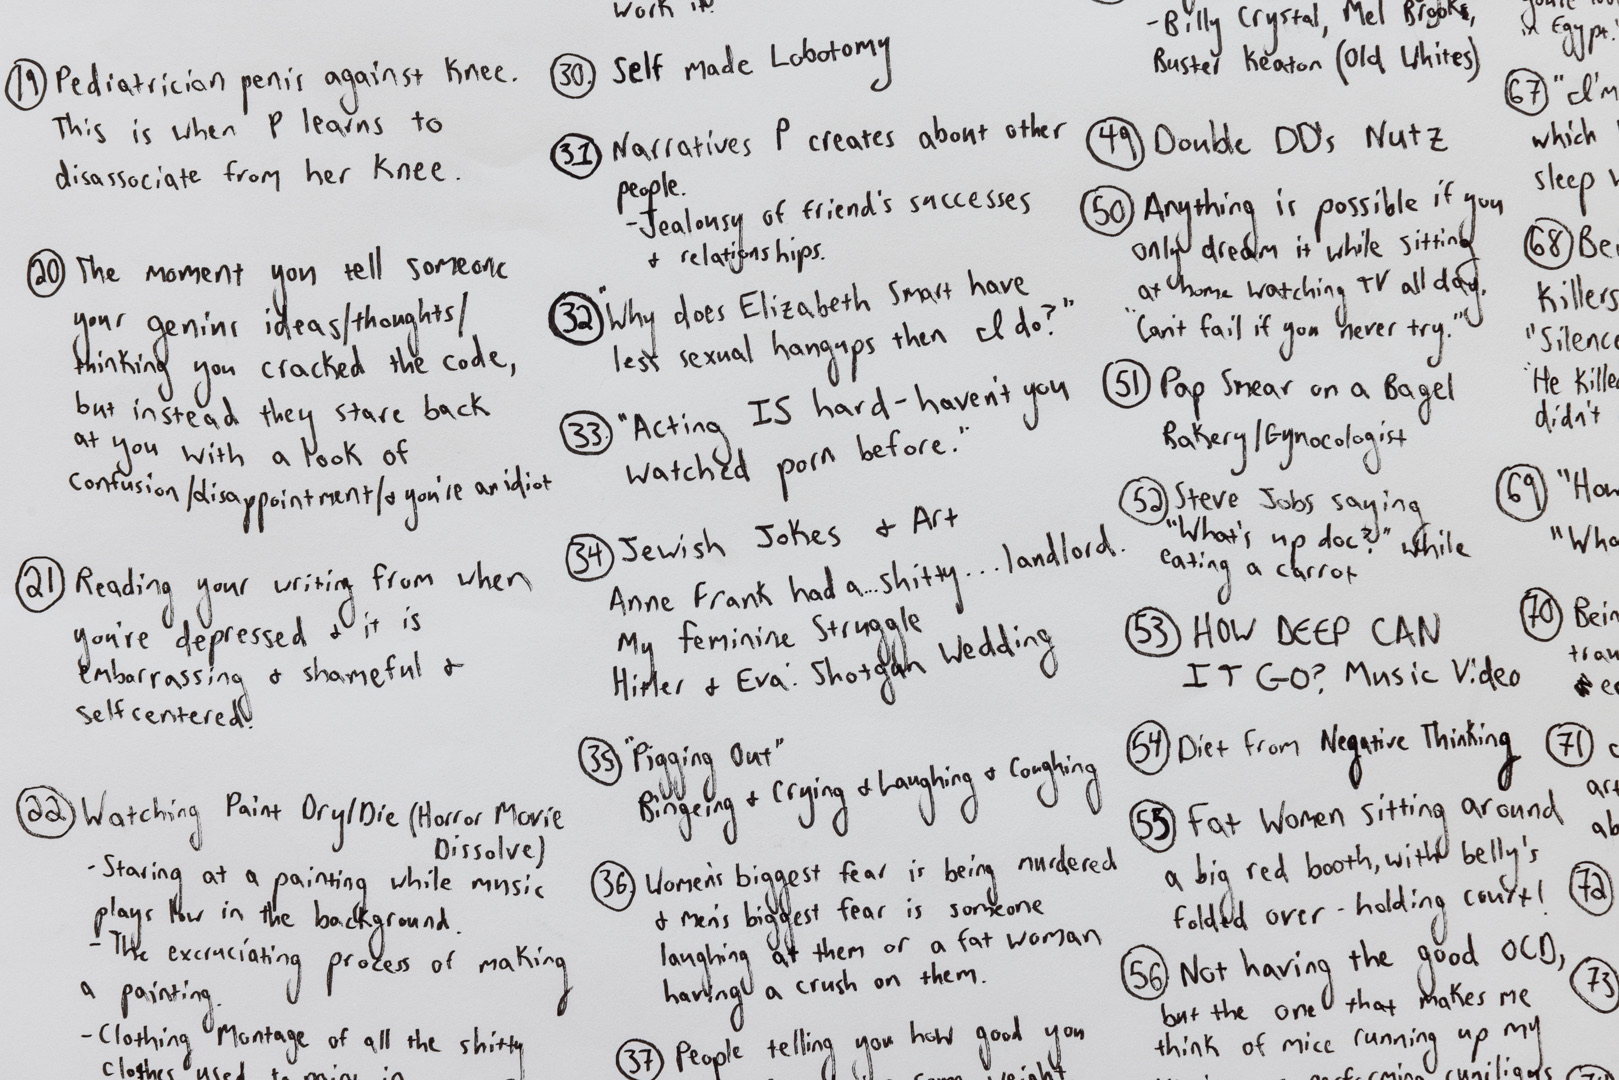 work it!
19 Pediatrician penis against knee.
This is when P learns to
disassociate from her knee.
20 The moment you tell someone
your genius ideas/thoughts/
thinking you cracked the code,
but instead they stare back
at you with a look of
confusion/disappointment/& you're an idiot
21 Reading your writing from when
you're depressed & it is
embarrassing & shameful &
selfcentered.
22 Watching Paint Dry/Die (Horror Movie
Dissolve)
- Staring at a painting while music
plays low in the background.
- The excruciating process of making
a painting.
- Clothing Montage of all the shitty
clothes used to
30 Self made Lobotomy
31 Narratives P creates about other
people.
- Jealousy of friend's successes
& relationships.
32 "Why does Elizabeth Smart have
less sexual hangups then I do?"
33. "Acting IS hard - haven't you
watched porn before."
34 Jewish Jokes & Art
Anne Frank had a...shitty...landlord.
My feminine Struggle
Hitler & Eva: Shotgun Wedding
35 "Pigging Out"
Bingeing & Crying & Laughing & Coughing
36 Women's biggest fear is being murdered
& men's biggest fear is someone
laughing at them or a fat woman
having a crush on them.
37 People telling you how good you
weight
- Billy Crystal, Mel Brooks,
Buster Keaton (Old Whites)
49 Double DD's Nutz
50 Anything is possible if you
only dream it while sitting
at home watching TV all day.
"Can't fail if you never try."
51 Pap Smear on a Bagel
Bakery/Gynocologist
52 Steve Jobs saying
"What's up doc?" while
eating a carrot
53 HOW DEEP CAN
IT GO? Music Video
54 Diet from Negative Thinking
55 Fat Women sitting around
a big red booth, with belly's
folded over - holding court!
56 Not having the good OCD,
but the one that makes me
think of mice running up my
performing
in Egypt.
67 "I'm
which
sleep
68 Be
Killers
"Silence
He killed
didn't
69 "How
"Wha
70 Bein
tran
71
art
ab
72
73